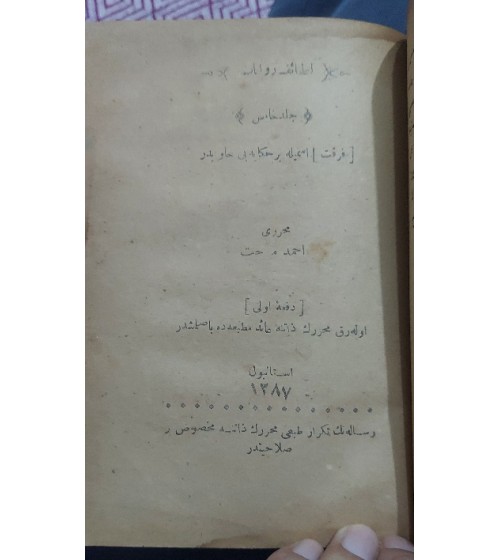 لطائف روايات
جلد خامس
[ فرقت ] اسميله بر حكايه يى حاويدر
محررى
احمد مدحت
[ دفعهٔ اولى ]
اوله رق محررك ذاتنه عائد مطبعه ده باصلمشدر
استانبول
١٢٨٧
رساله نك تكرار طبعى محررك ذاتنه مخصوص بر
صلاحيتدر